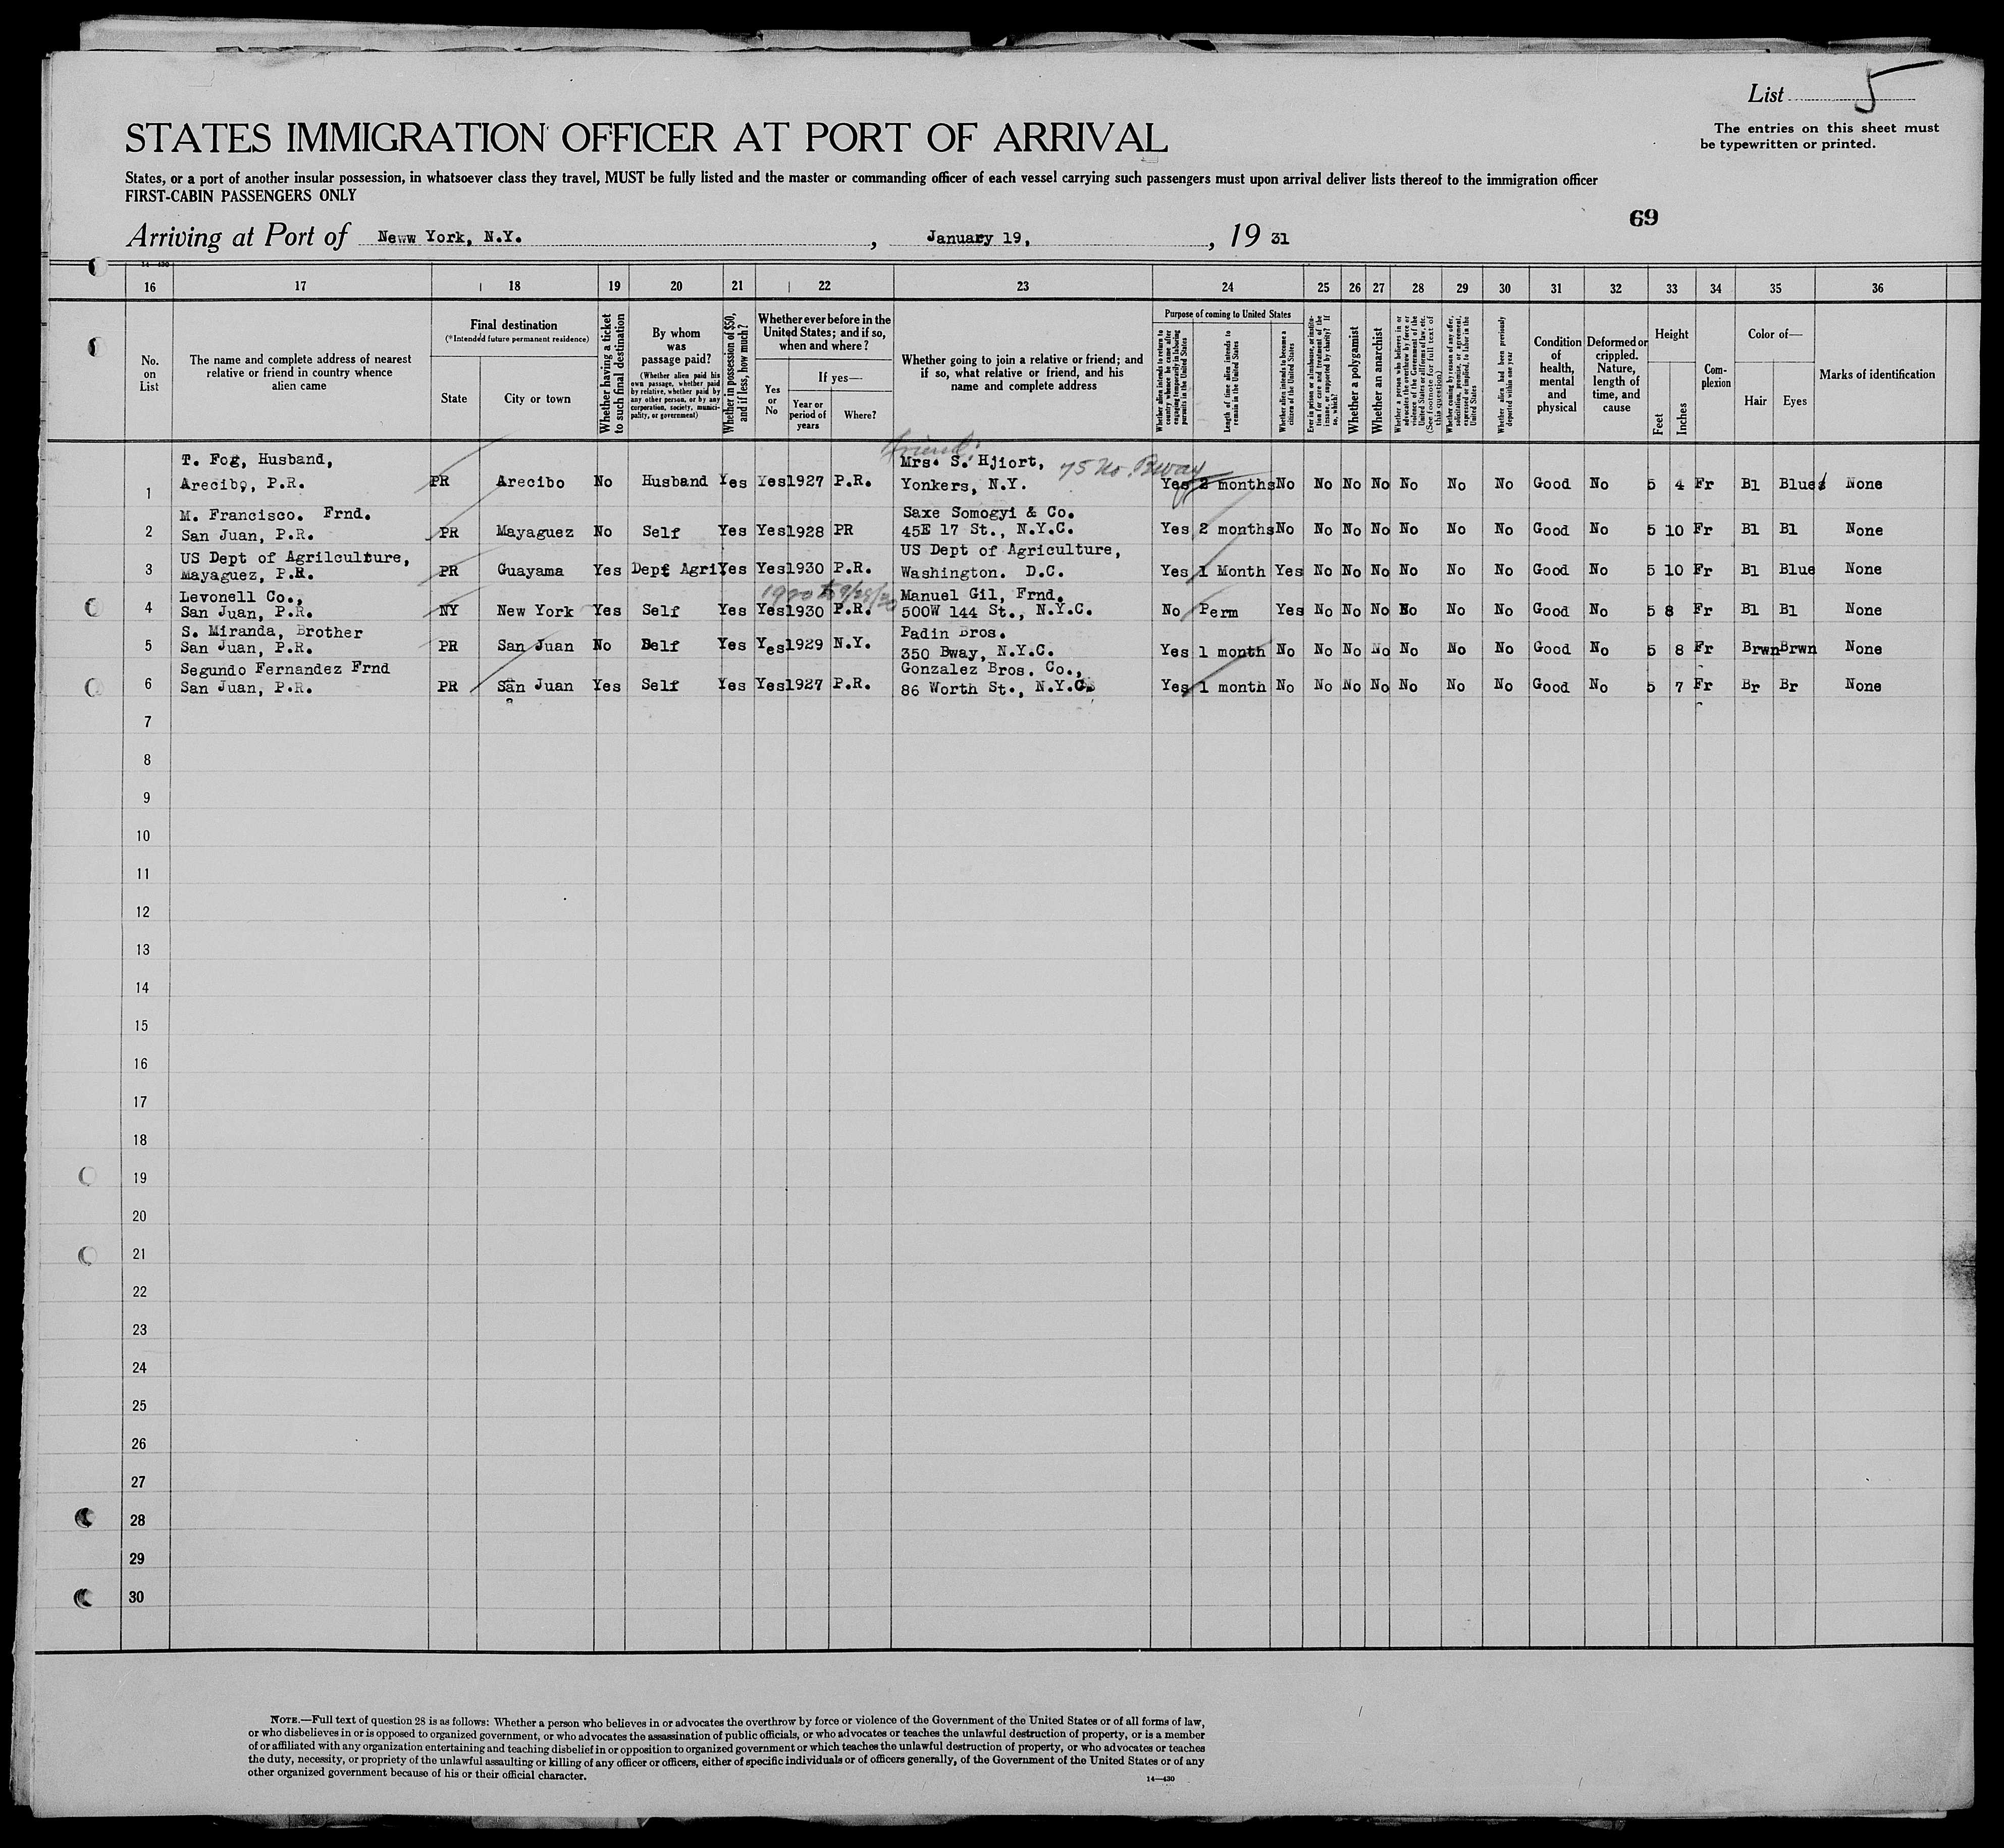 List 5
STATES IMMIGRATION OFFICER AT PORT OF ARRIVAL
The entries on this sheet must
be typewritten or printed.
States, or a port of another insular possession, in whatsoever class they travel, MUST be fully listed and the master or commanding officer of each vessel carrying such passengers must upon arrival deliver lists thereof to the immigration officer
FIRST-CABIN PASSENGERS ONLY
69
Arriving at Port of Neww York, N.Y. , January 19, , 19 31
14-430
16 17 18 19 20 21 22 23 24 25 26 27 28 29 30 31 32 33 34 35 36
No. on List
The name and complete address of nearest relative or friend in country whence alien came
Final destination
(*Intended future permanent residence)
State
City or town
Whether having a ticket to such final destination
By whom was passage paid?
(Whether alien paid his own passage, whether paid by relative, whether paid by any other person, or by any corporation, society, municipality, or government)
Whether in possession of $50, and if less, how much?
Whether ever before in the United States; and if so, when and where?
Yes or No
If yes—
Year or period of years
Where?
Whether going to join a relative or friend; and if so, what relative or friend, and his name and complete address
Purpose of coming to United States
Whether alien intends to return to country whence he came after engaging temporarily in laboring pursuits in the United States
Length of time alien intends to remain in the United States
Whether alien intends to become a citizen of the United States
Ever in prison or almshouse, or institution for care and treatment of the insane, or supported by charity? If so, which?
Whether a polygamist
Whether an anarchist
Whether a person who believes in or advocates the overthrow by force or violence of the Government of the United States or all forms of law, etc. (See footnote for full text of this question)
Whether coming by reason of any offer, solicitation, promise, or agreement, expressed or implied, to labor in the United States
Whether alien had been previously deported within one year
Condition of health, mental and physical
Deformed or crippled. Nature, length of time, and cause
Height
Feet
Inches
Complexion
Color of—
Hair
Eyes
Marks of identification
friend:
T. Fog, Husband, Mrs. S. Hjiort, 75 No. Bway
1 Arecibo, P.R. PR Arecibo No Husband Yes Yes 1927 P.R. Yonkers, N.Y. Yes 2 months No No No No No No No Good No 5 4 Fr Bl Blue None
M. Francisco. Frnd. Saxe Somogyi & Co.
2 San Juan, P.R. PR Mayaguez No Self Yes Yes 1928 PR 45E 17 St., N.Y.C. Yes 2 months No No No No No No No Good No 5 10 Fr Bl Bl None
US Dept of Agrilculture, US Dept of Agriculture,
3 Mayaguez, P.R. PR Guayama Yes Dept Agri Yes Yes 1930 P.R. Washington. D.C. Yes 1 Month Yes No No No No No No Good No 5 10 Fr Bl Blue None
Levonell Co., 1920 to 9/29/30 Manuel Gil, Frnd.
4 San Juan, P.R. NY New York Yes Self Yes Yes 1930 P.R. 500W 144 St., N.Y.C. No Perm Yes No No No No No No Good No 5 8 Fr Bl Bl None
S. Miranda, Brother Padin Bros.
5 San Juan, P.R. PR San Juan No Self Yes Yes 1929 N.Y. 350 Bway, N.Y.C. Yes 1 month No No No No No No No Good No 5 8 Fr Brwn Brwn None
Segundo Fernandez Frnd Gonzalez Bros. Co.,
6 San Juan, P.R. PR San Juan Yes Self Yes Yes 1927 P.R. 86 Worth St., N.Y.C. Yes 1 month No No No No No No No Good No 5 7 Fr Br Br None
7
8
9
10
11
12
13
14
15
16
17
18
19
20
21
22
23
24
25
26
27
28
29
30
NOTE.—Full text of question 28 is as follows: Whether a person who believes in or advocates the overthrow by force or violence of the Government of the United States or of all forms of law,
or who disbelieves in or is opposed to organized government, or who advocates the assassination of public officials, or who advocates or teaches the unlawful destruction of property, or is a member
of or affiliated with any organization entertaining and teaching disbelief in or opposition to organized government or which teaches the unlawful destruction of property, or who advocates or teaches
the duty, necessity, or propriety of the unlawful assaulting or killing of any officer or officers, either of specific individuals or of officers generally, of the Government of the United States or of any
other organized government because of his or their official character.
14—430